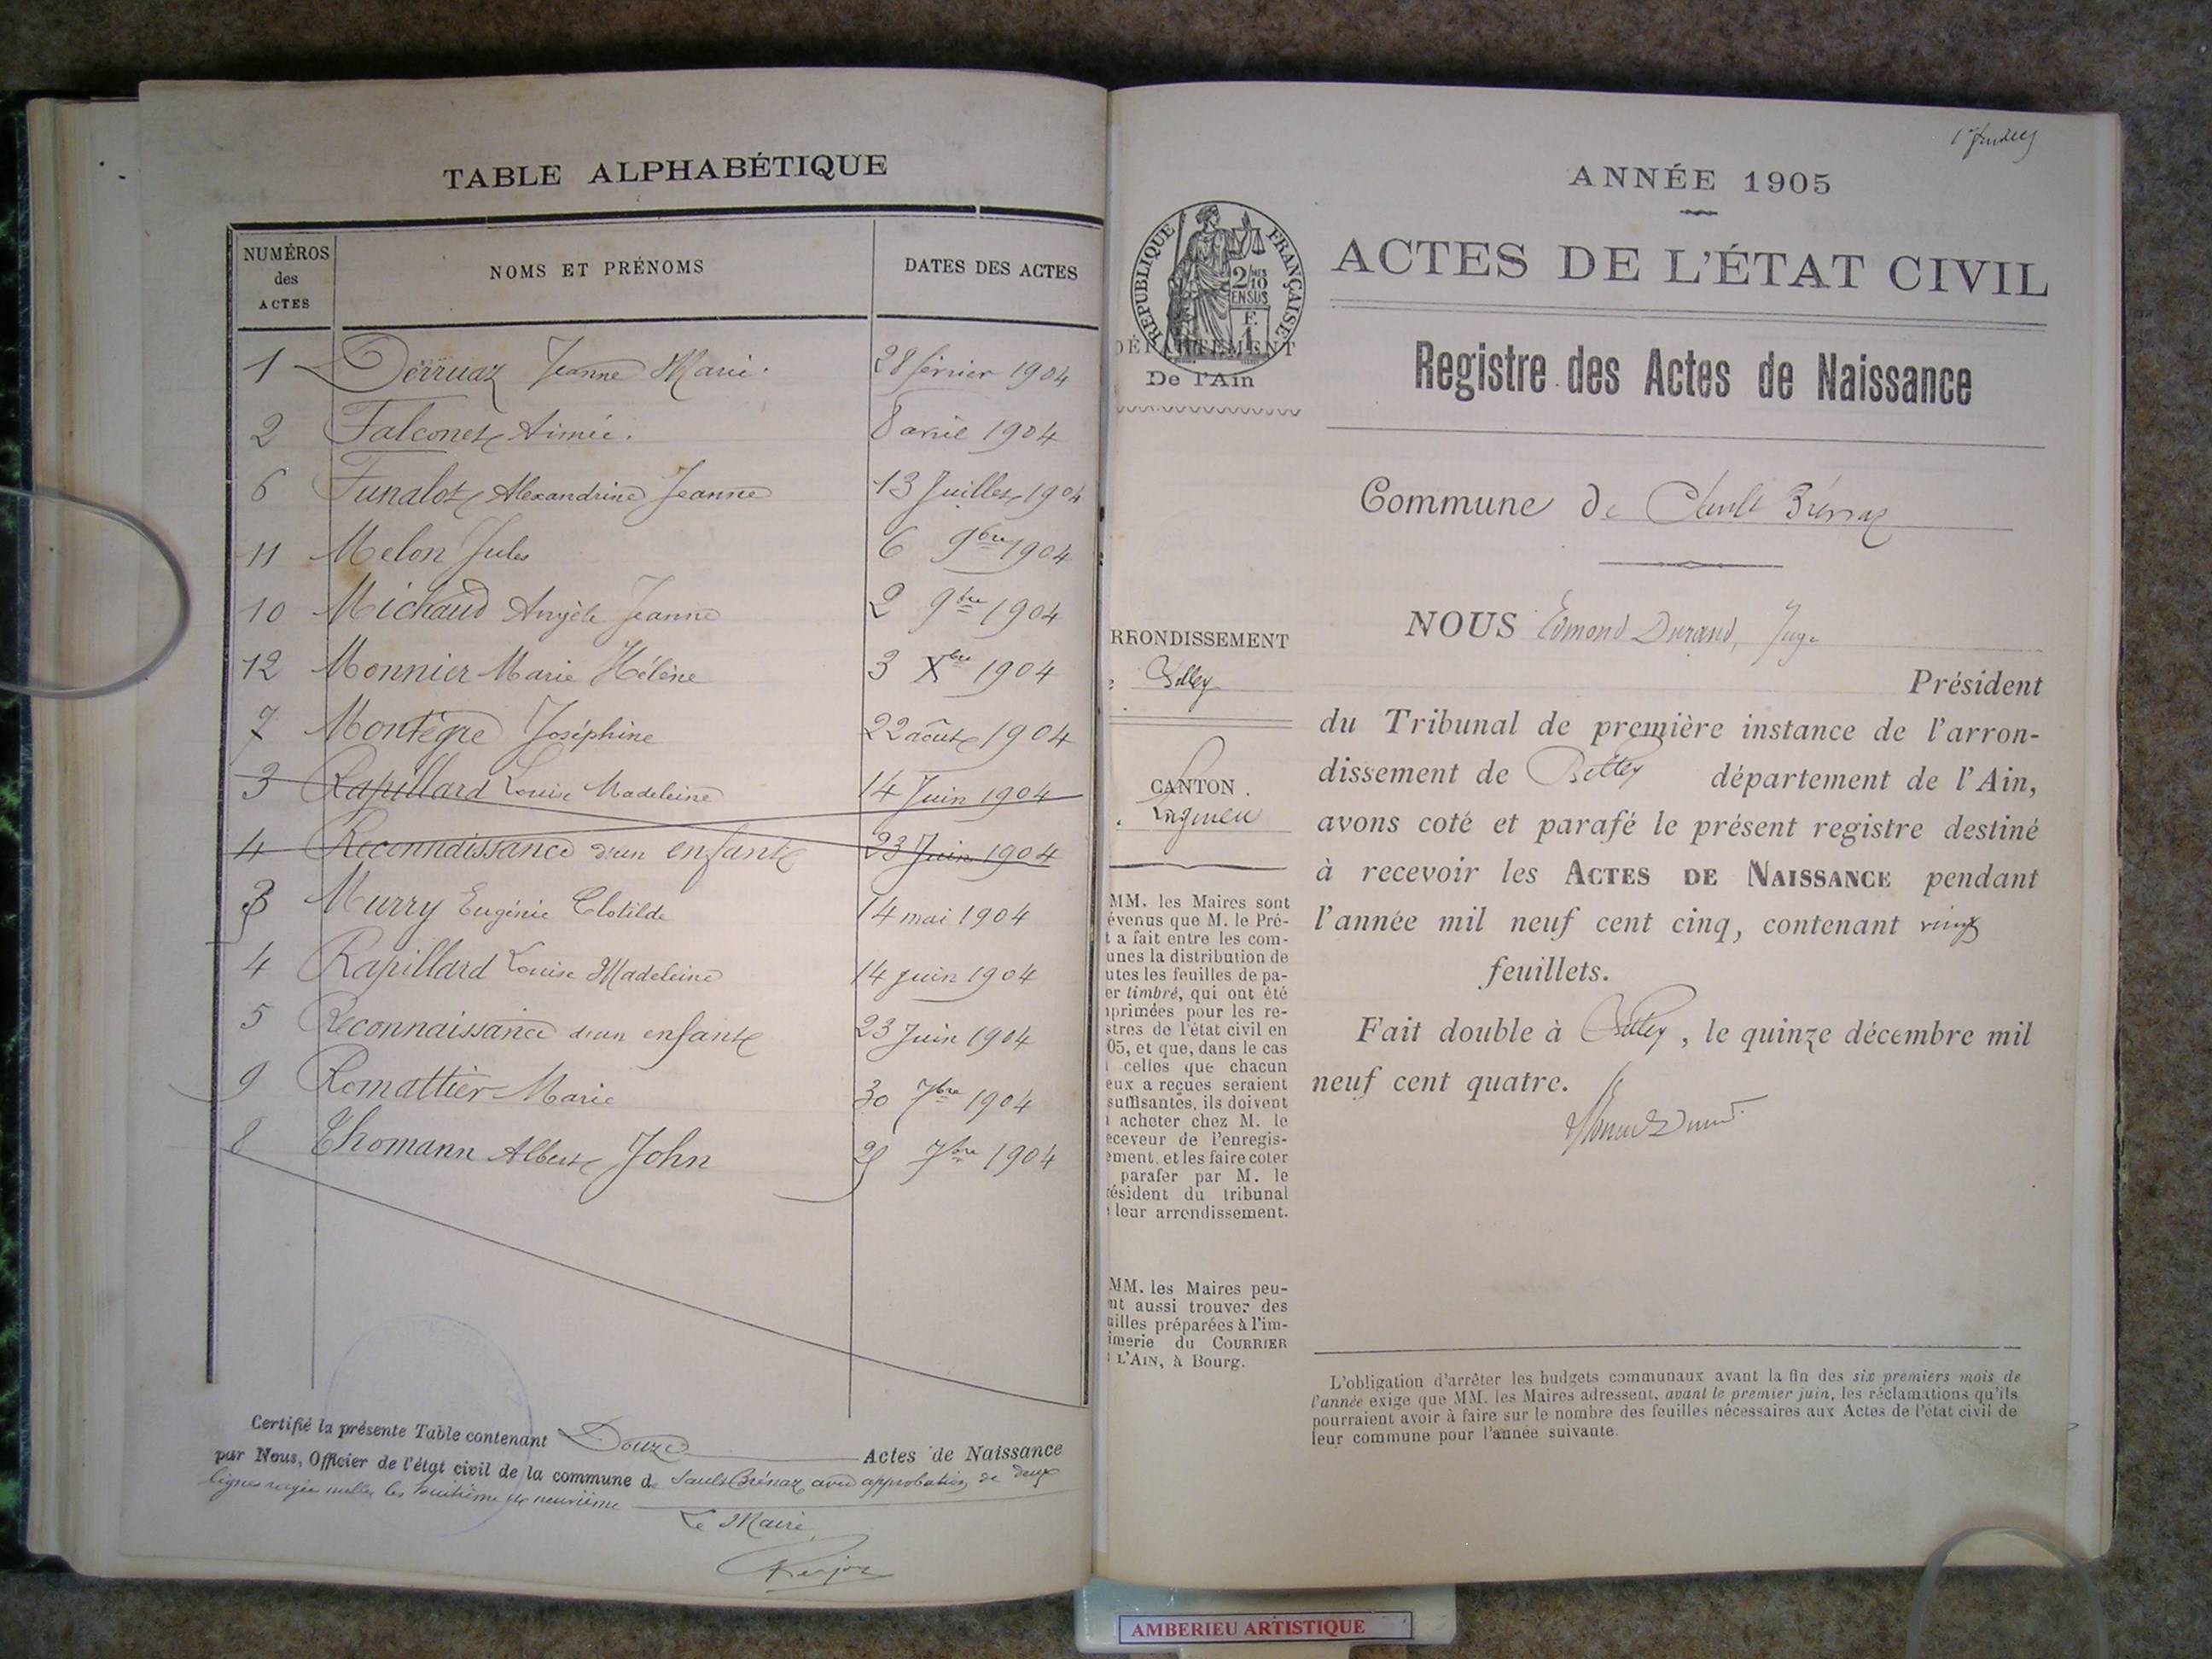 TABLE ALPHABÉTIQUE
NUMÉROS des ACTES NOMS ET PRÉNOMS DATES DES ACTES
1 Derruaz Jeanne Marie. 28 février 1904
2 Falconet Aimée. 8 avril 1904
6 Funalot Alexandrine Jeanne 13 Juillet 1904
11 Melon Jules 6 9bre 1904
10 Michaud Angèle Jeanne 2 9bre 1904
12 Monnier Marie Hélène 3 Xbre 1904
7 Montègre Joséphine 22 août 1904
3 Rapillard Louise Madeleine 14 Juin 1904
4 Reconnaissance d'un enfant 23 Juin 1904
3 Murry Eugénie Clotilde 14 mai 1904
4 Rapillard Louise Madeleine 14 juin 1904
5 Reconnaissance d'un enfant 23 Juin 1904
9 Romattier Marie 30 7bre 1904
8 Thomann Albert John 7bre 1904
Certifié la présente Table contenant Douze Actes de Naissance
par Nous, Officier de l'état civil de la commune d Sault Brénaz avec approbation de deux
lignes rayées nulles les huitième et neuvième
Le Maire,
ANNÉE 1905
ACTES DE L'ÉTAT CIVIL
RÉPUBLIQUE FRANÇAISE
2/10 EN SUS
F. 1
DÉPARTEMENT
De l'Ain
Registre des Actes de Naissance
Commune de Sault Brénaz
RRONDISSEMENT
Belley
CANTON
Lagnieu
MM. les Maires sont
évenus que M. le Pré-
t a fait entre les com-
unes la distribution de
utes les feuilles de pa-
er timbré, qui ont été
primées pour les re-
stres de l'état civil en
05, et que, dans le cas
celles que chacun
eux a reçues seraient
suffisantes, ils doivent
acheter chez M. le
eceveur de l'enregis-
ement, et les faire coter
parafer par M. le
résident du tribunal
leur arrondissement.
MM. les Maires peu-
nt aussi trouver des
uilles préparées à l'im-
imerie du COURRIER
L'AIN, à Bourg.
NOUS Edmond Durand, Juge
Président
du Tribunal de première instance de l'arron-
dissement de Belley département de l'Ain,
avons coté et parafé le présent registre destiné
à recevoir les ACTES DE NAISSANCE pendant
l'année mil neuf cent cinq, contenant vingt
feuillets.
Fait double à Belley, le quinze décembre mil
neuf cent quatre.
L'obligation d'arrêter les budgets communaux avant la fin des six premiers mois de
l'année exige que MM. les Maires adressent, avant le premier juin, les réclamations qu'ils
pourraient avoir à faire sur le nombre des feuilles nécessaires aux Actes de l'état civil de
leur commune pour l'année suivante.
AMBERIEU ARTISTIQUE